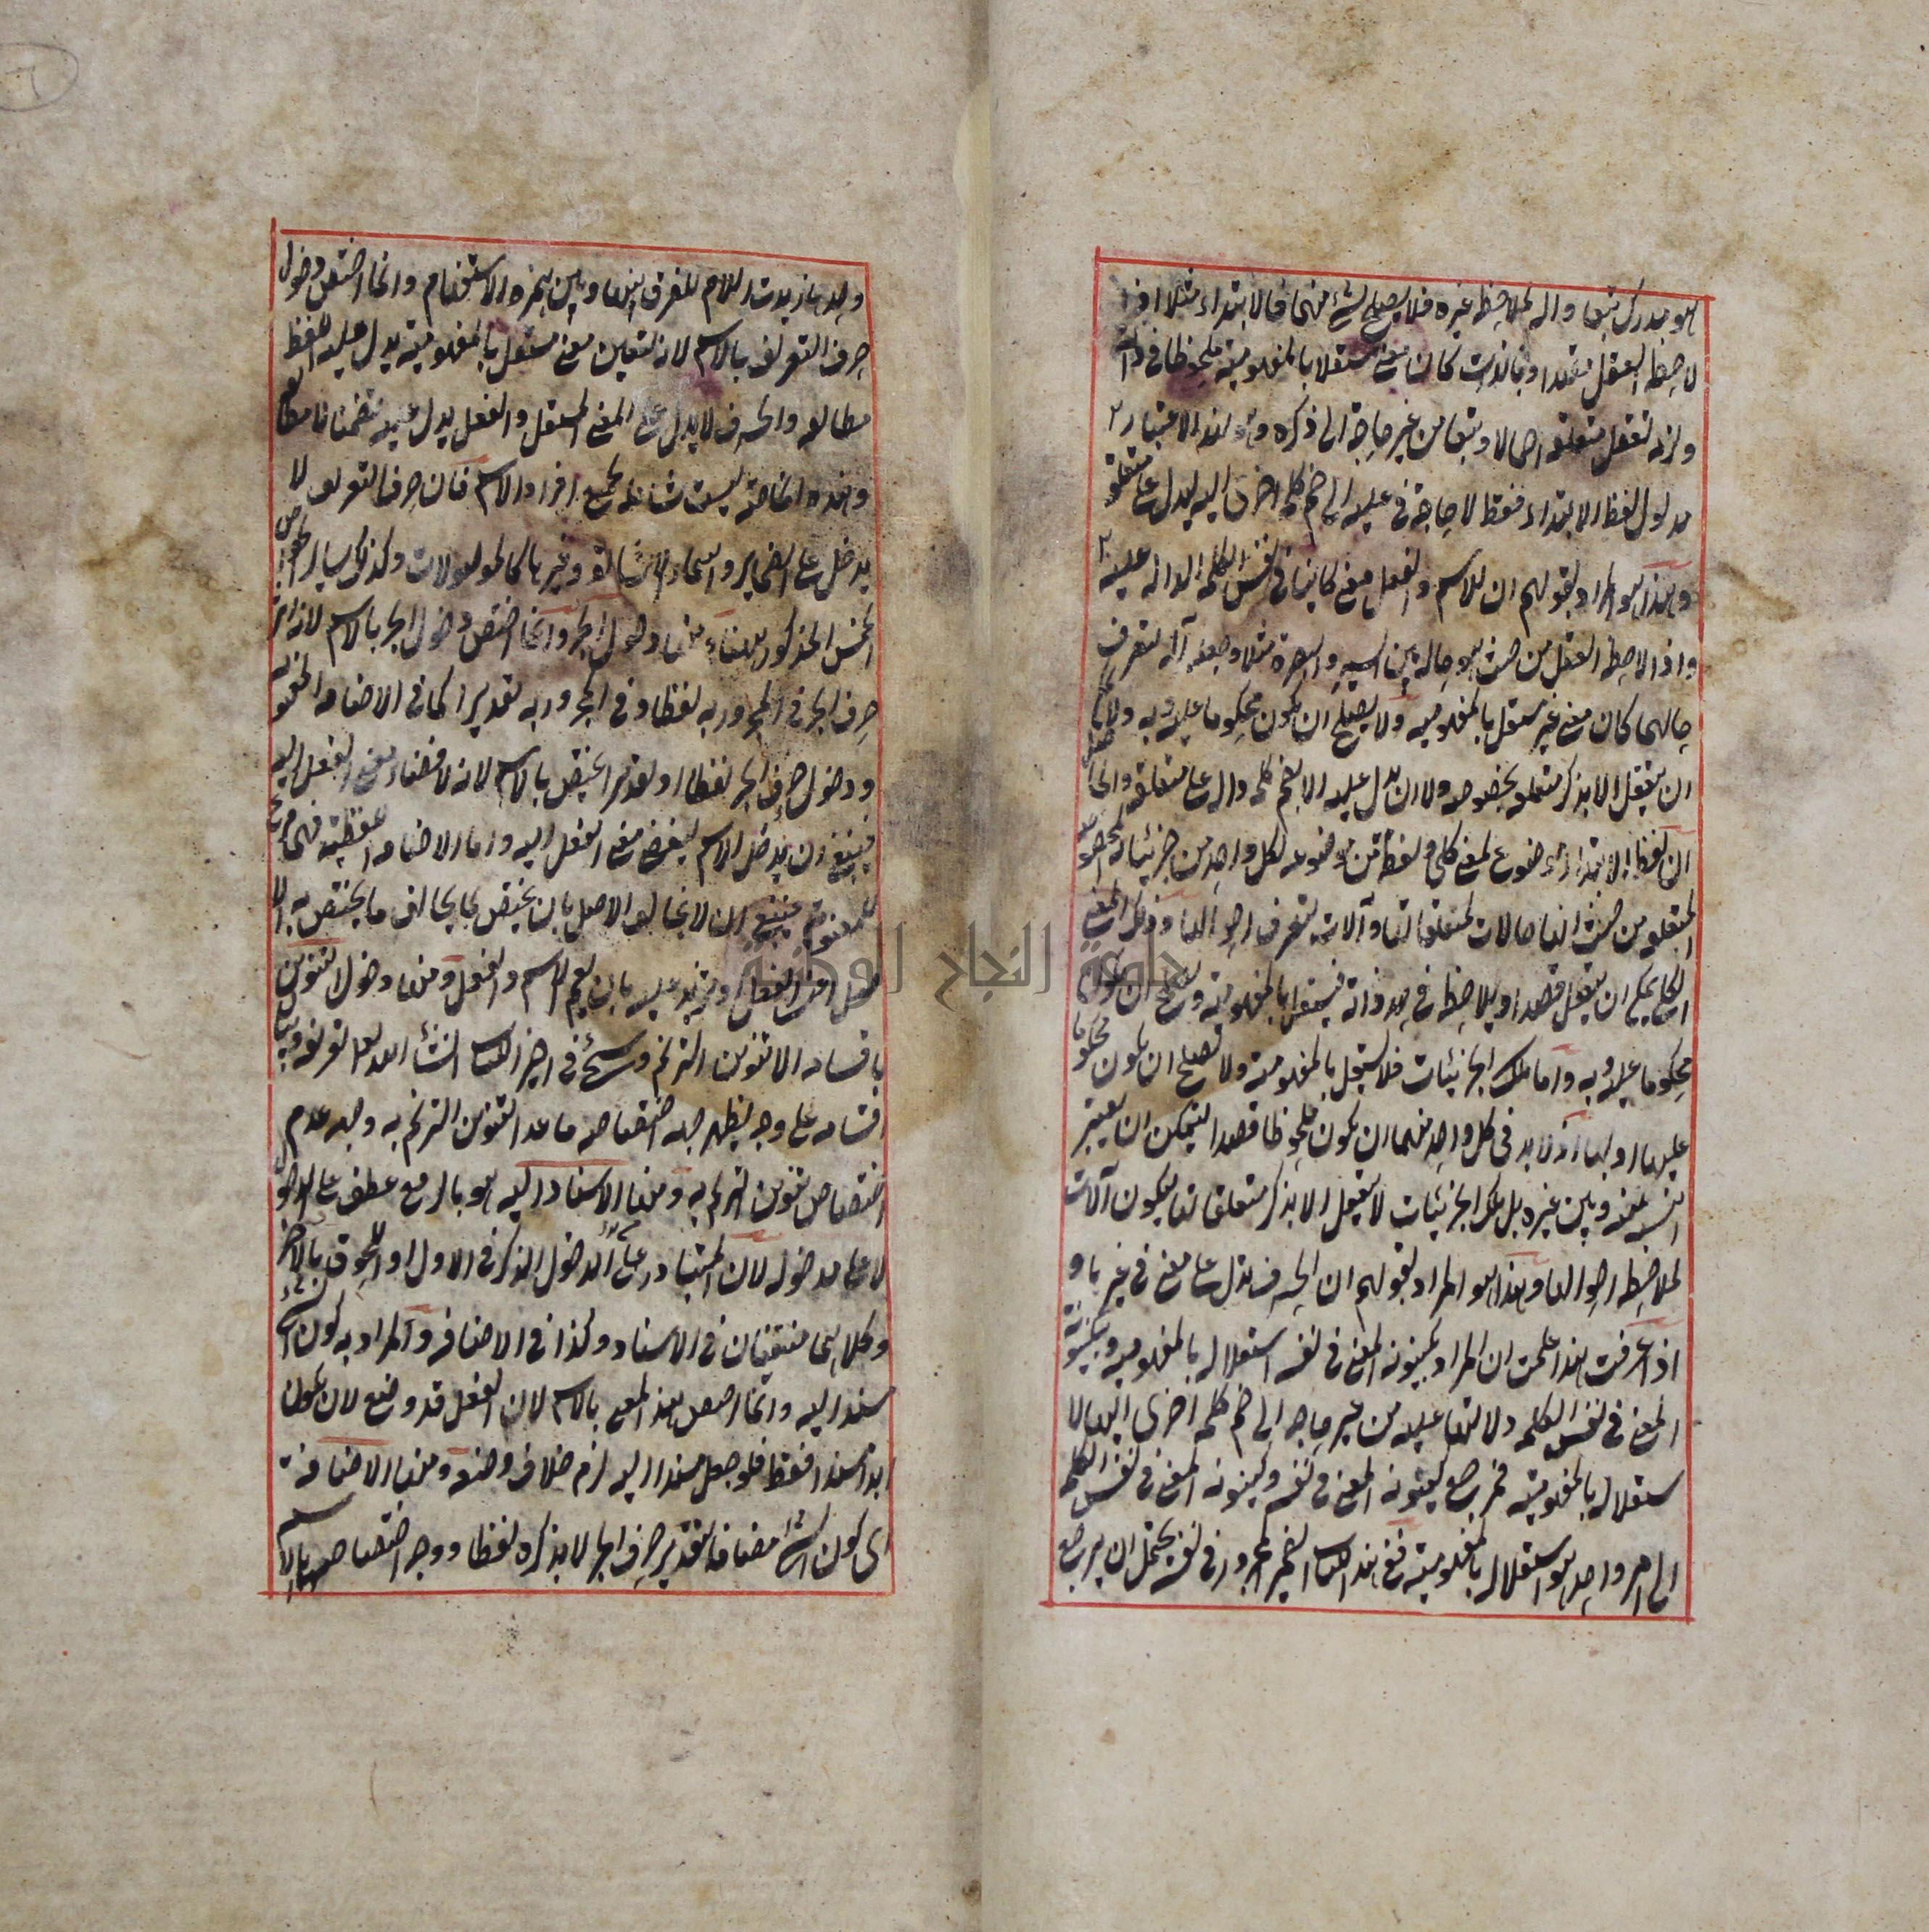 هو مدرك تبعا وآلة لملاحظة غيره فلا يصلح لشئ منهما فالابتداء مثلا اذا
لاحظه العقل قصدا وبالذات كان معنى مستقلا بالمفهومية ملحوظا في ذاته
ولزمه تعقل متعلقه اجمالا وتبعا من غير حاجة الى ذكره وهو بهذا الاعتبار
مدلول لفظ الابتداء فقط لا حاجة في عليه الى ضم كلمة اخرى اليه ليدل على متعلقه
وهذا هو المراد بقولهم ان للاسم والفعل معنى كاينا في نفس الكلمة الدالة عليه
واذا لاحظه العقل من حيث هو حالة بين السير والبصرة مثلا وجعله آلة لتعرف
حالهما كان معنى غير مستقل بالمفهومية ولا يصلح ان يكون محكوما عليه وبه ولا يمكن
ان يتعقل الا بذكر متعلقه بخصوصه ولا ان يدل عليه الا بضم كلمة دالة على متعلقه والحاصل
ان لفظ الابتداء موضوع لمعنى كلي ولفظة من موضوعة لكل واحد من جزئياته المخصوصة
المتعلقة من حيث انها حالات لمتعلقاتها وآلات لتعرف احوالها وذلك المعنى
الكلي يمكن ان يتعقل قصدا ويلاحظ في حد ذاته فيستقل بالمفهومية ويصلح ان يكون
محكوما عليه وبه واما تلك الجزئيات فلا تستقل بالمفهومية ولا تصلح ان يكون محكوما
عليها او بها اذ لا بد في كل واحد منهما ان يكون ملحوظا قصدا ليتمكن ان يعتبر
النسبة بينه وبين غيره بل تلك الجزئيات لا يتعقل الا بذكر متعلقاتها ليكون آلات
لملاحظة احوالها وهذا هو المراد بقولهم ان الحرف يدل على معنى في غيرها و
اذا عرفت هذا علمت ان المراد بكينونة المعنى في نفسه استقلاله بالمفهومية وبكينونة
المعنى في نفس الكلمة دلالتها عليه من غير حاجة الى ضم كلمة اخرى اليها لا
ستقلاله بالمفهومية فمرجع كينونة المعنى في نفسه وكينونة المعنى في نفس الكلمة
الى امر واحد هو استقلاله بالمفهومية ففي هذا الكتاب الضمير المجرور في نفسه يحتمل ان يرجع
وحدها زيدت اللام للفرق بينها وبين همزة الاستفهام وانما اختص دخول
حرف التعريف بالاسم لانه لتعيين معنى مستقل بالمفهومية يدل عليه اللفظ
مطابقة والحرف لا يدل على المعنى المستقل والفعل يدل عليه تضمنا لا مطابقة
وهذه الخاصة ليست شاملة لجميع افراد الاسم فان حرف التعريف لا
يدخل على الضماير واسماء الاشارة وغيرها كالموصولات وكذلك ساير الخواص
الخمس المذكورة ههنا ومنها دخول الجر وانما اختص دخول الجر بالاسم لانه اثر
حرف الجر في المجرور به لفظا وفي المجرور به تقديرا كما في الاضافة المعنوية
ودخول حرف الجر لفظا او تقديرا يختص بالاسم لانه لافضاء معنى الفعل اليه
فينبغي ان يدخل الاسم ليفضى معنى الفعل اليه واما الاضافة اللفظية فهي فرع
للمعنوية فينبغي ان لا يخالف الاصل بان يختص بما يخالف ما يختص به الا
صل اعني الفعل او يزيد عليه بان يعم الاسم والفعل ومنها دخول التنوين
باقسامه الا تنوين الترنم وسيجئ في اخر الكتاب انشأ الله تعالى تعريفه وبيان
اقسامه على وجه يظهر جهة اختصاصه ما عدا التنوين الترنم به وجهة عدم
اختصاص تنوين الترنم به ومنها الاسناد اليه هو بالرفع عطف على الدخول
لا على مدخوله لان المتبادر من الدخول الذكر في الاول او اللحوق بالاخر
وكلاهما منتفيان في الاسناد وكذا في الاضافة والمراد به كون الشئ
مسندا اليه وانما اختص هذا المعنى بالاسم لان الفعل قد وضع لان يكون
ابدا مسندا فقط فلو جعل مسندا اليه لزم خلاف وضعه ومنها الاضافة
اى كون الشئ مضافا بتقدير حرف الجر لا بذكره لفظا ووجه اختصاصها بالاسم
جامعة النجاح الوطنية